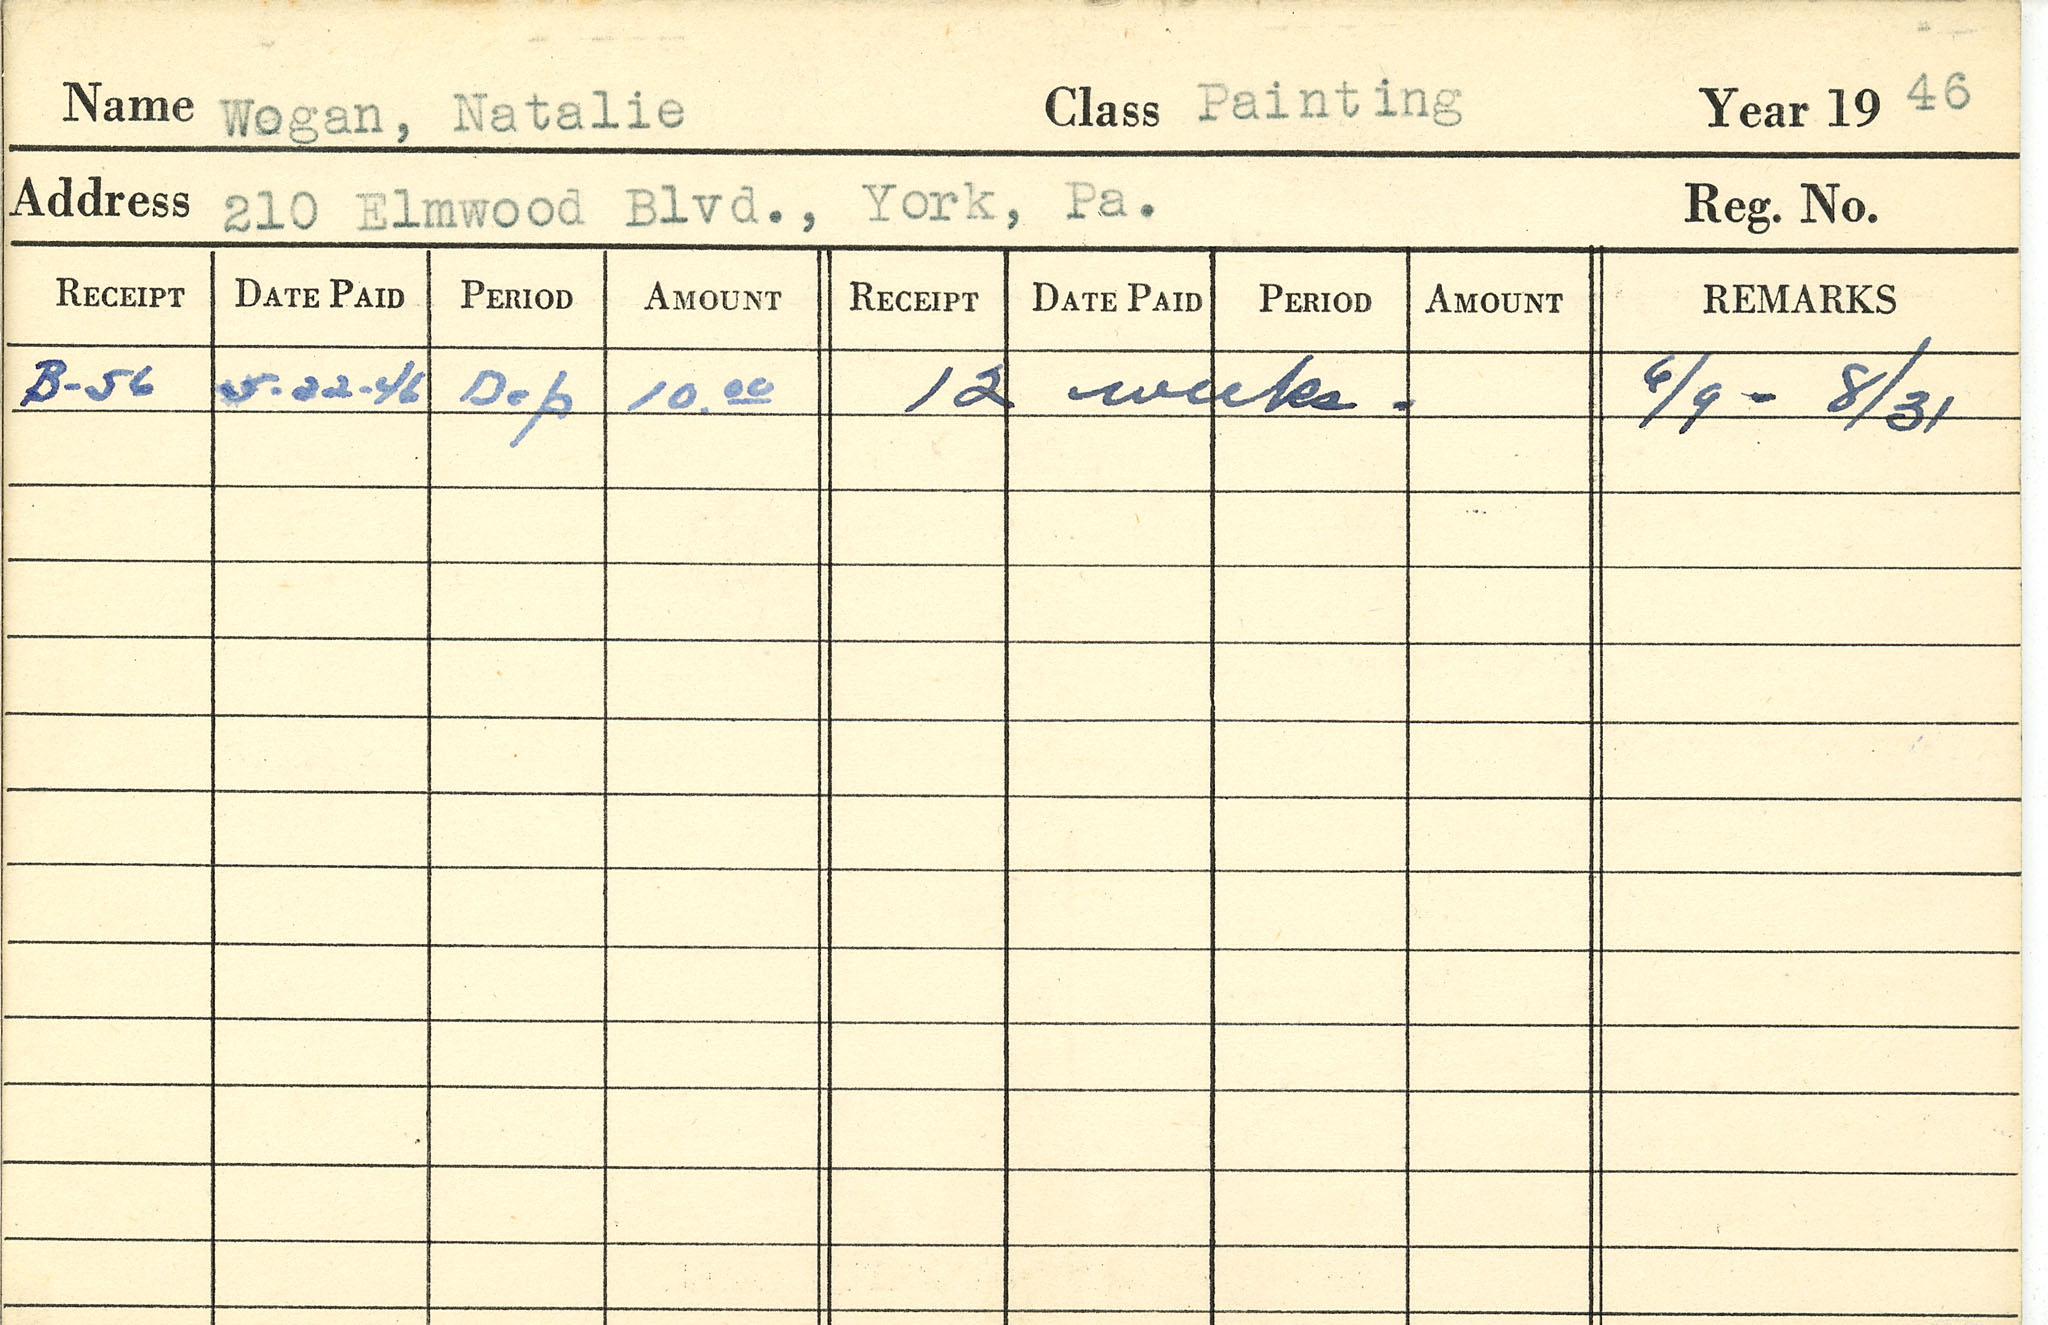 Name Wogan, Natalie Class Painting Year 19 46
Address 210 Elmwood Blvd., York, Pa. Reg. No.
RECEIPT DATE PAID PERIOD AMOUNT RECEIPT DATE PAID PERIOD AMOUNT REMARKS
B-56 5-22-46 Dep 10.00 12 weeks. 6/9 - 8/31